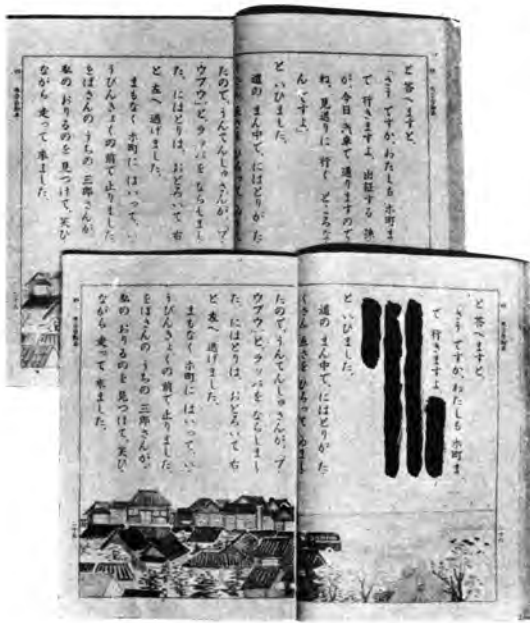 と 答へますと、
「さうですか、わたしも 本町ま
で 行きますよ。出征する 弟
が、今日 汽車で 通りますので
ね、見送りに 行く ところな
んですよ。」
と いひました。
道の まん中で、にはとりが た
たので、うんてんしゅさんが、「ブ
ウブウ」と、ラッパを ならしまし
た。にはとりは、おどろいて 右
と 左へ 逃げました。
まもなく 本町に はいって、い
うびんきょくの前で 止りました。
をばさんの うちの 三郎さんが、
私の おりるのを 見つけて、笑ひ
ながら 走って 来ました。
と 答へますと、
「さうですか、わたしも 本町ま
で 行きますよ。
と いひました。
道の まん中で、にはとりが た
くさん ゑさを ひろって ゐまし
たので、うんてんしゅさんが、「ブ
ウブウ」と、ラッパを ならしまし
た。にはとりは、おどろいて 右
と 左へ 逃げました。
まもなく 本町に はいって、い
うびんきょくの前で 止りました。
をばさんの うちの 三郎さんが、
私の おりるのを 見つけて、笑ひ
ながら 走って 来ました。